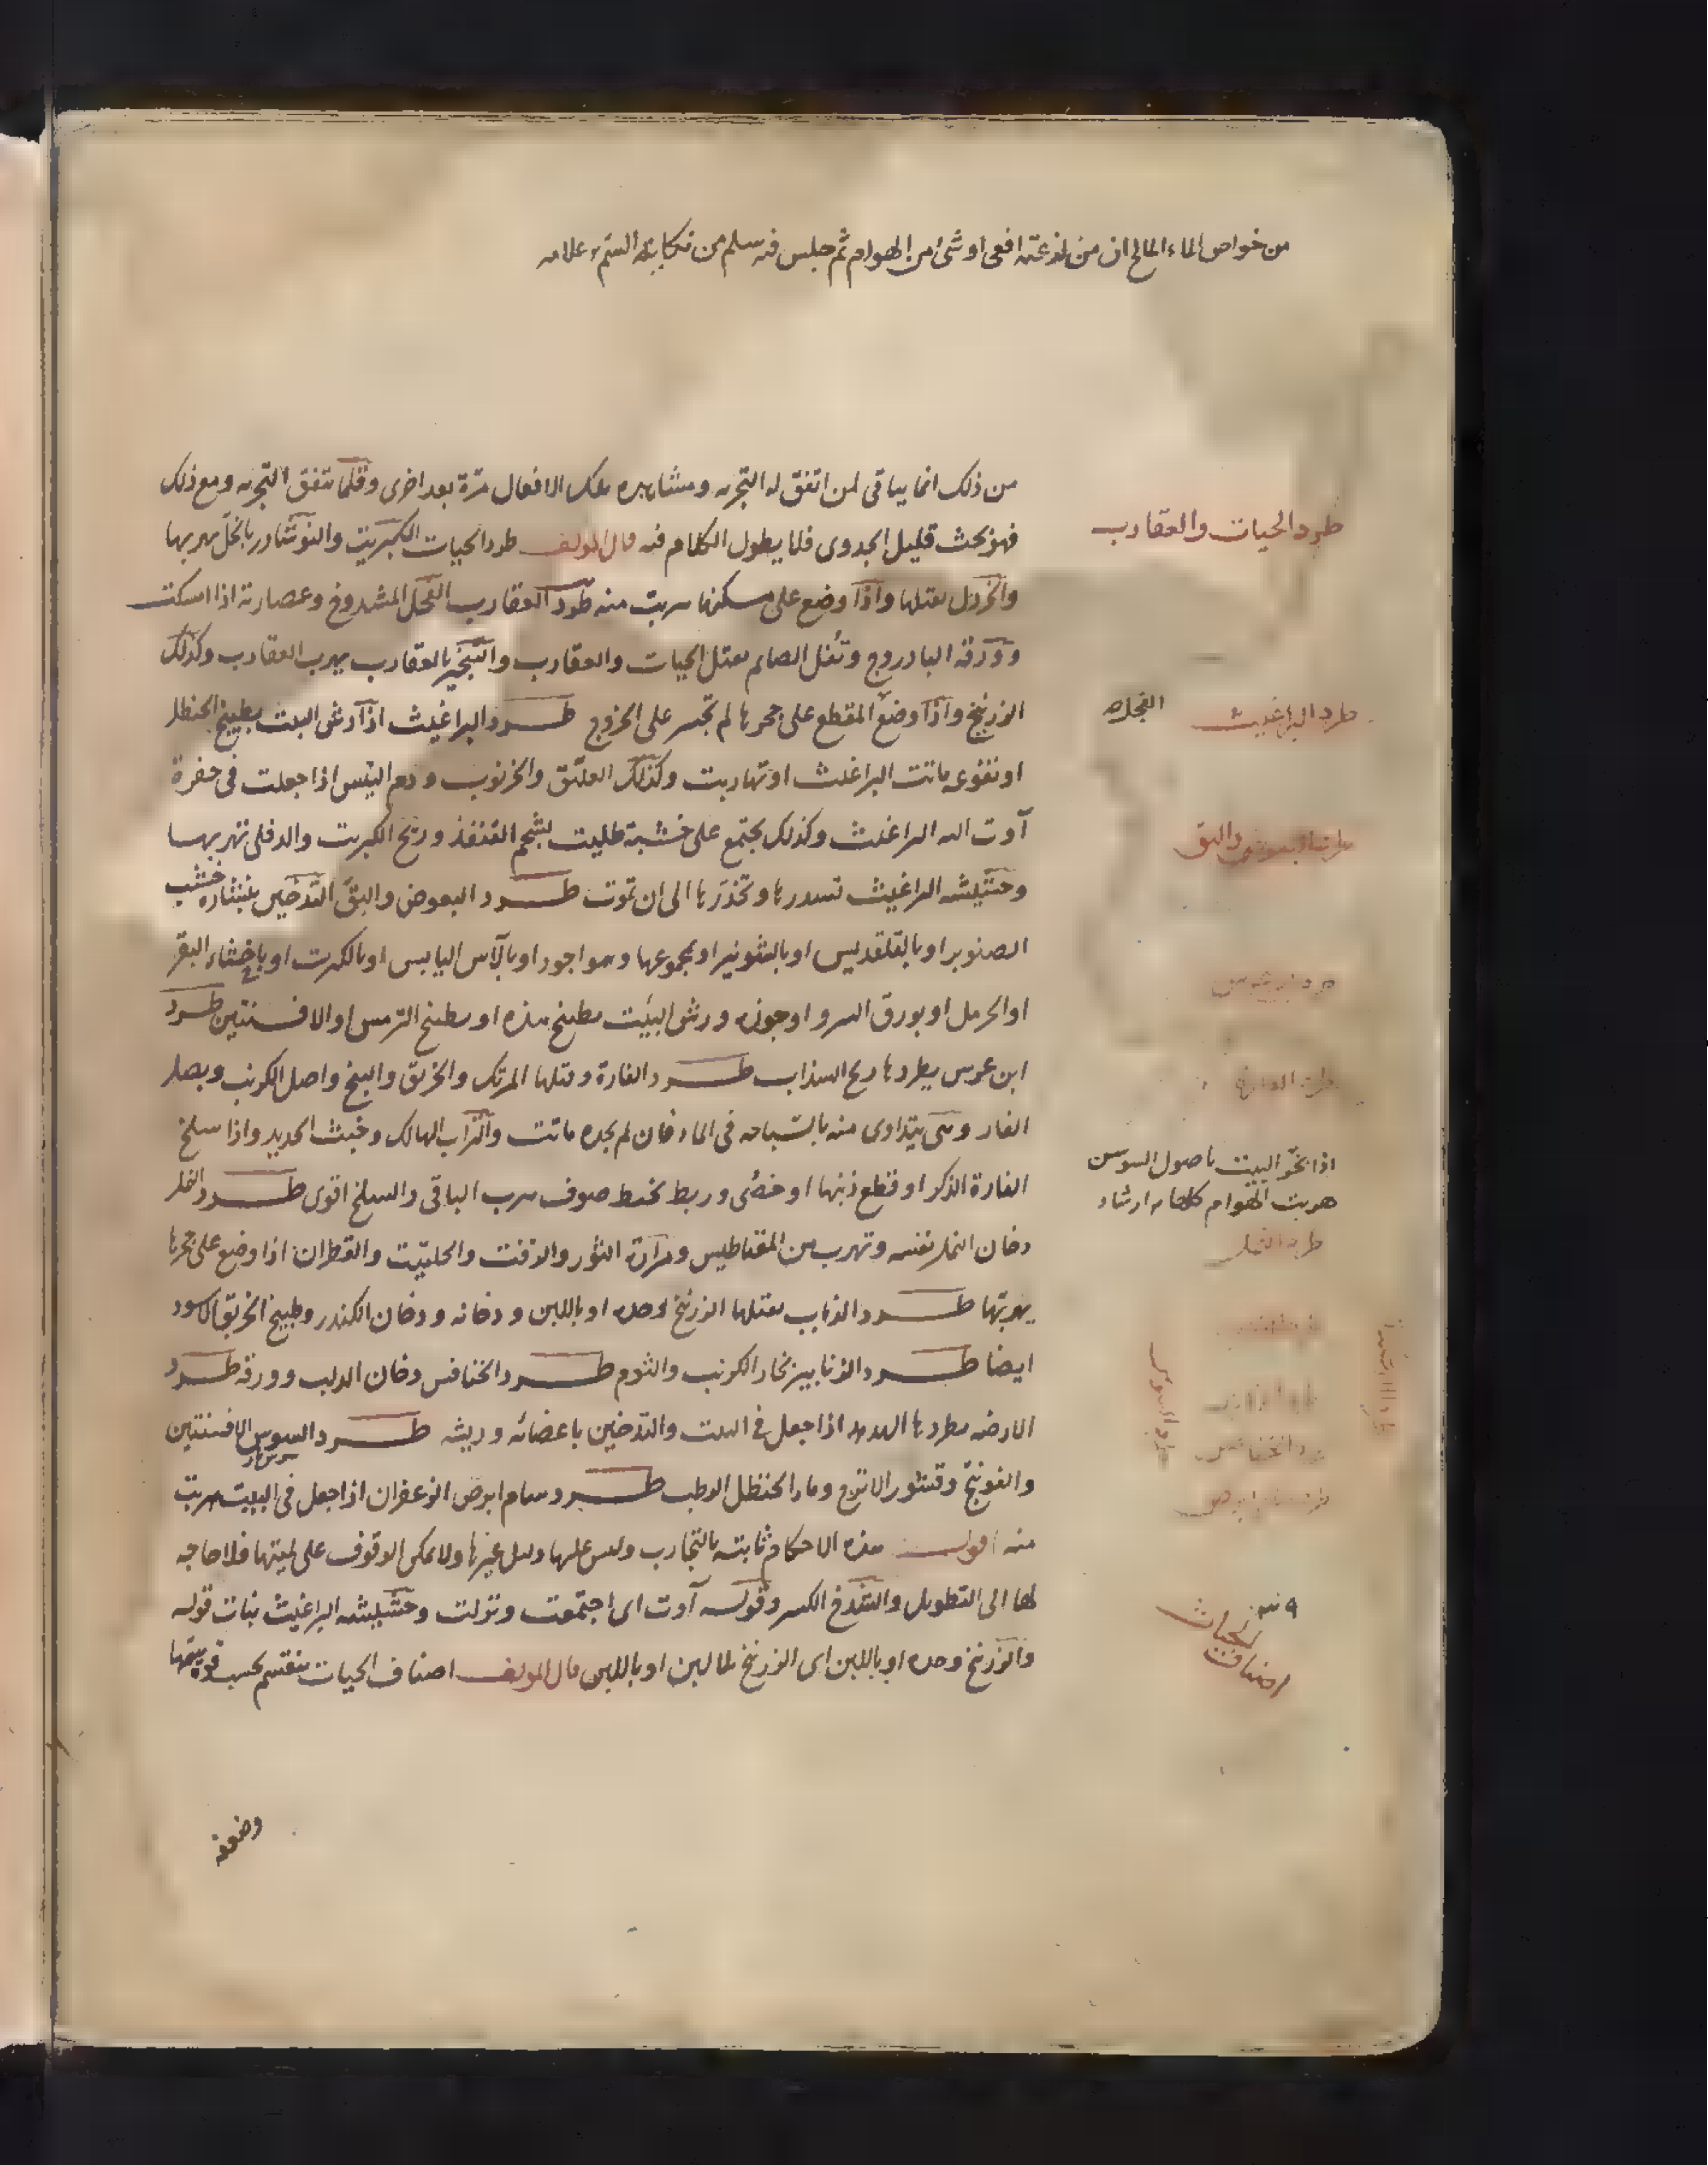 من خواص الماء المالح ان من لذعته افعى او شئ من الهوام ثم جلس فيه سلم من نكاية السم علامه
من ذلك انما يتاتى لمن اتفق له التجربه ومشاهده تلك الافعال مرة بعد اخرى وقلما تتفق التجربه ومع ذلك
فهو بحث قليل الجدوى فلا يطول الكلام فيه قال المولف طرد الحيات الكبريت والنوشادر بالخل يهربها
والخردل يقتلها واذا وضع على مسكنها هربت منه طرد العقارب الفجل المشدوخ وعصارته اذا امسكت
وورقه البادروج وتفل الصايم يقتل الحيات والعقارب والتبخير بالعقارب يهرب العقارب وكذلك
الزرنيخ واذا وضع المقطع على جحرها لم تجسر على الخروج طرد البراغيث اذا رش البيت بطبيخ الحنظل
او نقوعه ماتت البراغيث او تهاربت وكذلك العليق والخرنوب ودم التيس اذا جعلت فى حفرة
آوت اليه البراغيث وكذلك يجتمع على خشبة طليت بشحم القنفذ وريح الكبريت والدفلى تهربها
وحشيشه البراغيث تسدرها وتخدرها الى ان تموت طرد البعوض والبق التدخين بنشاره خشب
الصنوبر او بالقلقديس او بالشونيز او بمجموعها وهو اجود او بالآس اليابس او بالكبريت او باخثاء البقر
او الحرمل او بورق السرو او جوزه ورش البيت بطبيخ هذه او بطبيخ الترمس او الافسنتين طرد
ابن عرس يطردها ريح السذاب طرد الفارة وقتلها المرتك والخربق والبنج واصل الكرنب وبصل
الفار وهى يتداوى منه بالسباحه فى الماء فان لم يجده ماتت والتراب الهالك وخبث الحديد واذا سلخ
الفارة الذكر او قطع ذنبها او خصى وربط بخيط صوف هرب الباقى والسلخ اقوى طرد النمل
دخان النمل نفسه وتهرب من المقناطيس ومرارة الثور والزفت والحلتيت والقطران اذا وضع على جحرها
يهربها طرد الذباب يقتلها الزرنيخ وحده او باللبن ودخانه ودخان الكندر وطبيخ الخربق الاسود
ايضا طرد الزنابير بخار الكرنب والثوم طرد الخنافس دخان الدلب وورقه طرد
الارضه يطردها الهدهد اذا جعل فى البيت والتدخين باعضائه وريشه طرد السوس الافسنتين
والفوتنج وقشور الاترج وماء الحنظل الرطب طرد سام ابرص الزعفران اذا جعل فى البيت هربت
منه اقول هذه الاحكام ثابته بالتجارب وليس عليها دليل غيرها ولا يمكن الوقوف على لميتها فلا حاجه
لها الى التطويل والشدخ الكسر وقوله آوت اى اجتمعت ونزلت وحشيشه البراغيث نبات قوله
والزرنيخ وحده او باللبن اى الزرنيخ بلا لبن او باللبن قال المولف اصناف الحيات ينقسم بحسب قوة سمها
وضعفه
طرد الحيات والعقارب
طرد البراغيث
طرد البعوض والبق
اذا بخر البيت باصول السوسن
هربت الهوام كلها ارشاد
طرد النمل
اصناف الحيات